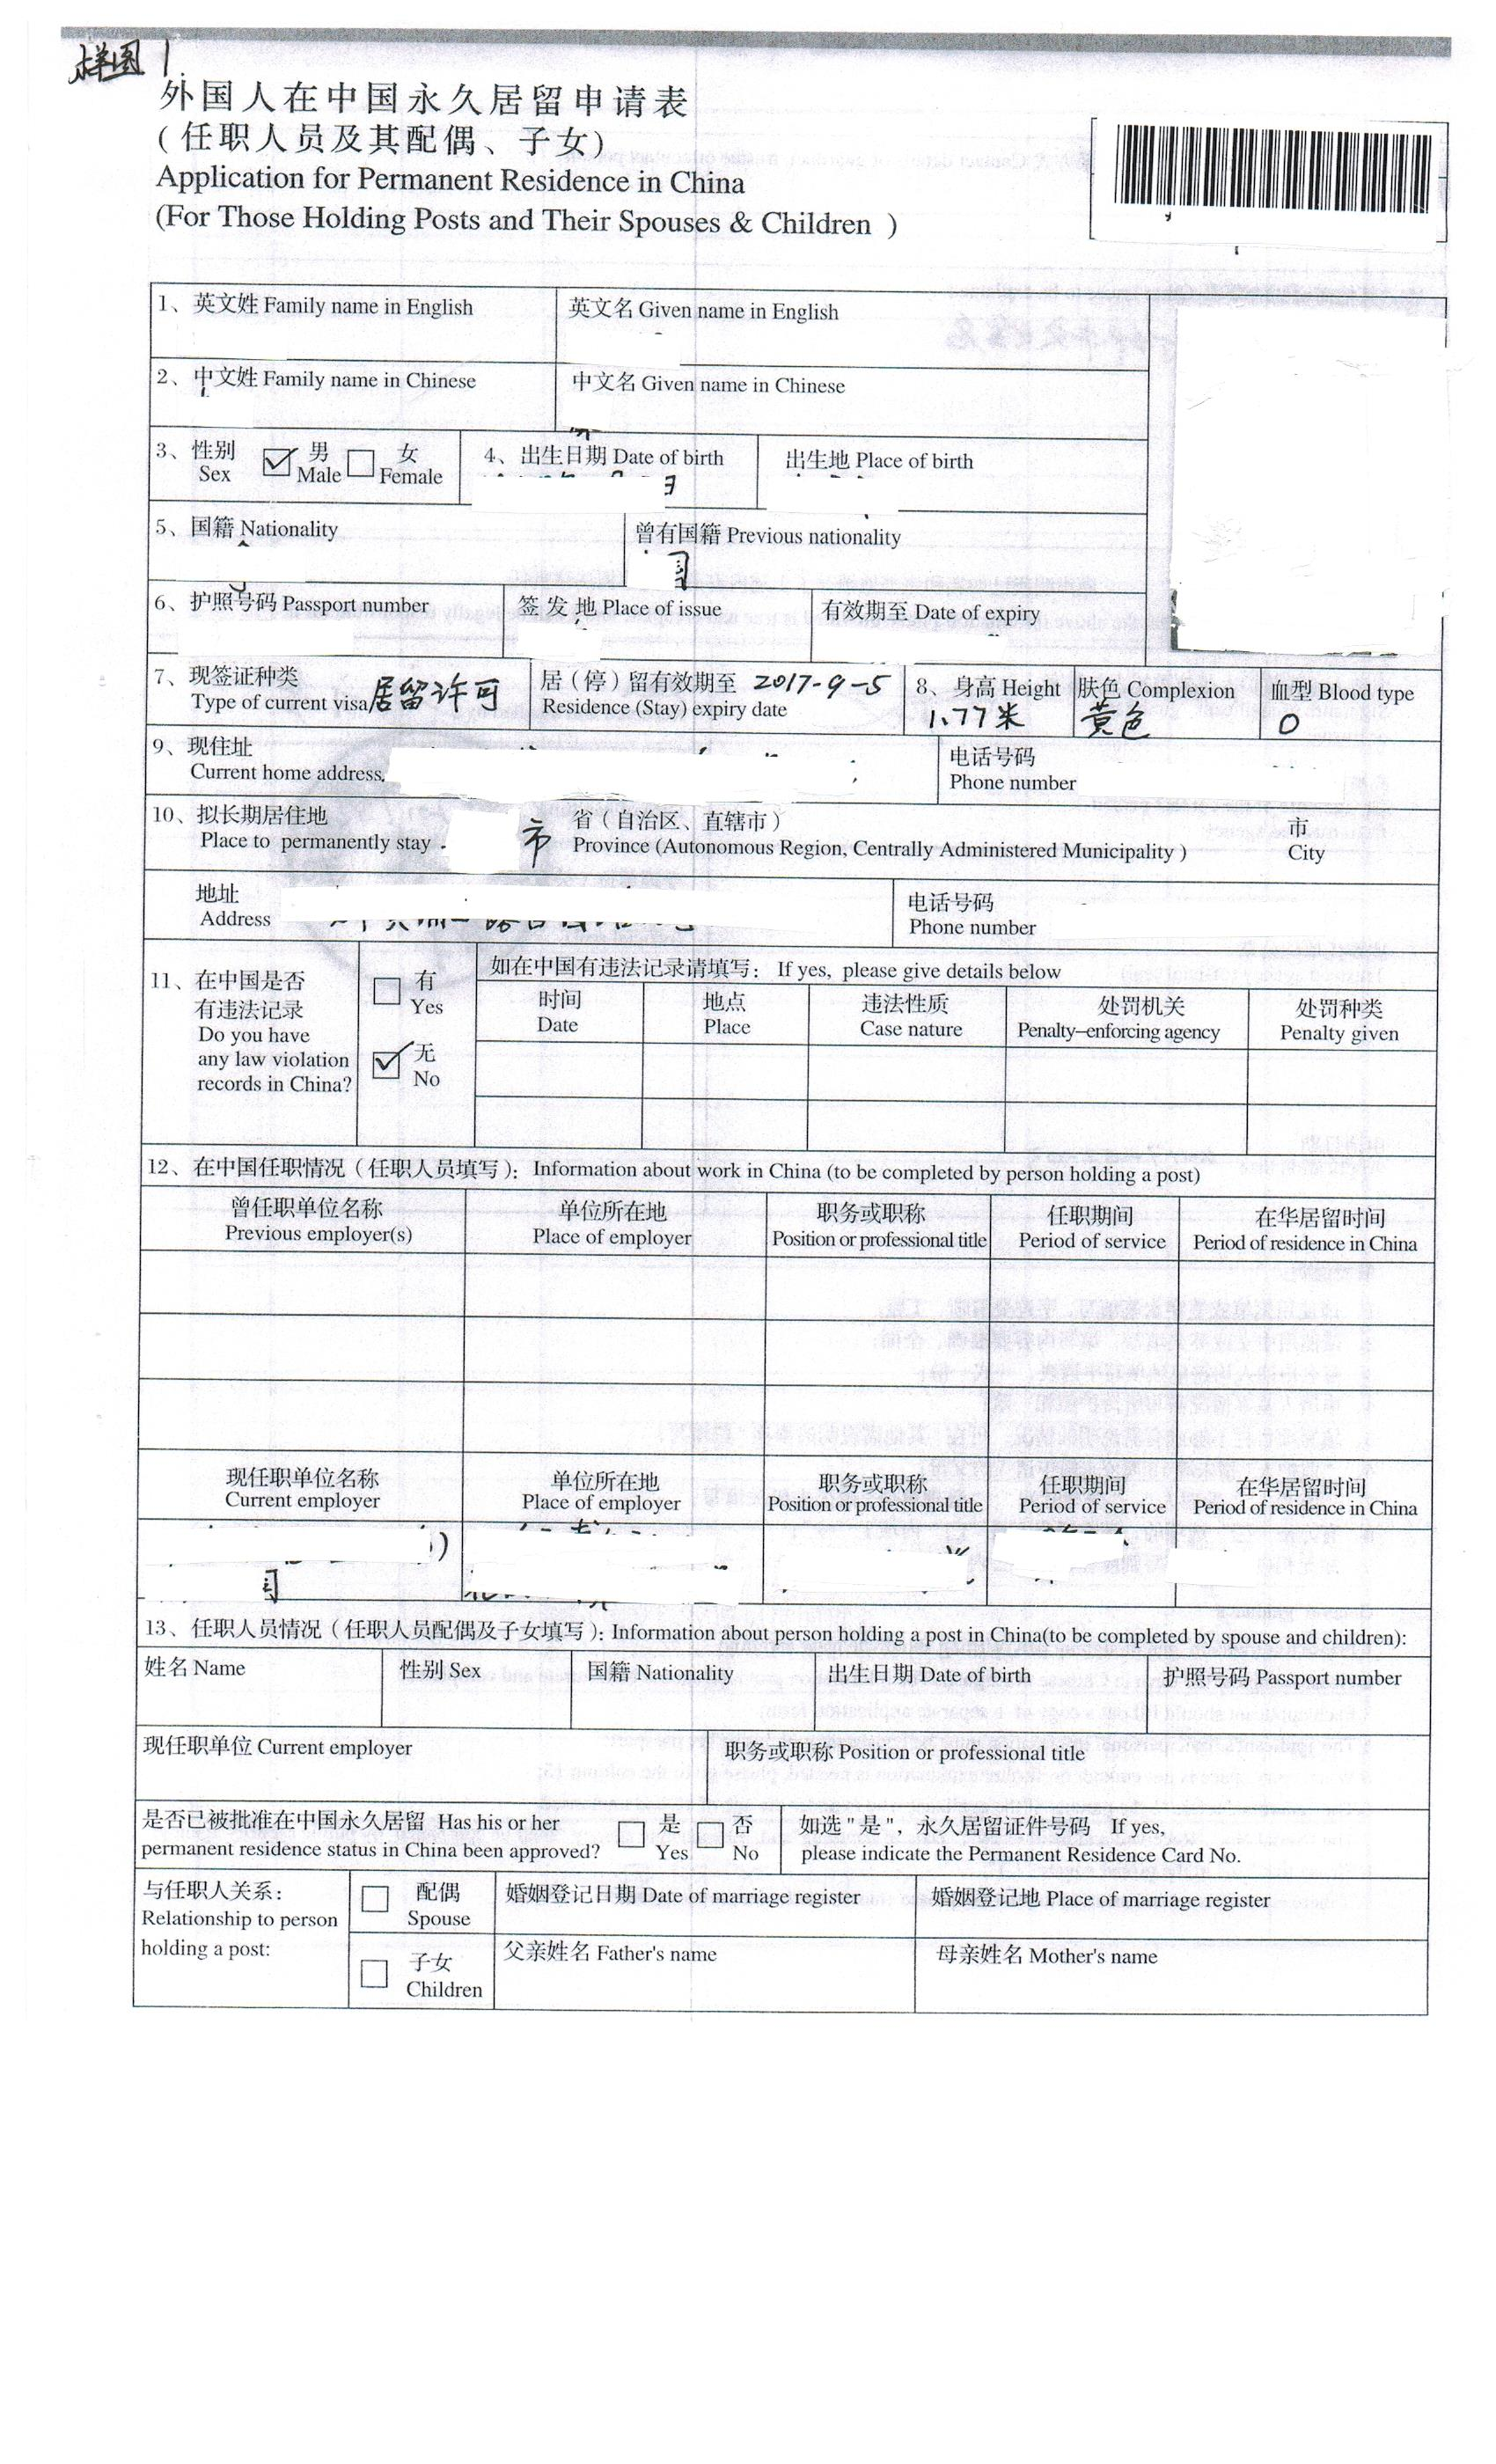 样图1
外国人在中国永久居留申请表
(任职人员及其配偶、子女)
Application for Permanent Residence in China
(For Those Holding Posts and Their Spouses & Children )
1、英文姓 Family name in English
英文名 Given name in English
2、中文姓 Family name in Chinese
中文名 Given name in Chinese
3、性别
Sex
男
Male
女
Female
4、出生日期 Date of birth
出生地 Place of birth
5、国籍 Nationality
曾有国籍 Previous nationality
6、护照号码 Passport number
签 发 地 Place of issue
有效期至 Date of expiry
7、现签证种类
Type of current visa 居留许可
居(停)留有效期至 2017-9-5
Residence (Stay) expiry date
8、身高 Height
1.77米
肤色 Complexion
黄色
血型 Blood type
O
9、现住址
Current home address
电话号码
Phone number
10、拟长期居住地
Place to permanently stay
市
省(自治区、直辖市)
Province (Autonomous Region, Centrally Administered Municipality )
市
City
地址
Address
电话号码
Phone number
11、在中国是否
有违法记录
Do you have
any law violation
records in China?
有
Yes
无
No
如在中国有违法记录请填写: If yes, please give details below
时间
Date
地点
Place
违法性质
Case nature
处罚机关
Penalty–enforcing agency
处罚种类
Penalty given
12、在中国任职情况(任职人员填写): Information about work in China (to be completed by person holding a post)
曾任职单位名称
Previous employer(s)
单位所在地
Place of employer
职务或职称
Position or professional title
任职期间
Period of service
在华居留时间
Period of residence in China
现任职单位名称
Current employer
单位所在地
Place of employer
职务或职称
Position or professional title
任职期间
Period of service
在华居留时间
Period of residence in China
13、任职人员情况(任职人员配偶及子女填写): Information about person holding a post in China(to be completed by spouse and children):
姓名 Name
性别 Sex
国籍 Nationality
出生日期 Date of birth
护照号码 Passport number
现任职单位 Current employer
职务或职称 Position or professional title
是否已被批准在中国永久居留 Has his or her
permanent residence status in China been approved?
是
Yes
否
No
如选"是", 永久居留证件号码 If yes,
please indicate the Permanent Residence Card No.
与任职人关系:
Relationship to person
holding a post:
配偶
Spouse
婚姻登记日期 Date of marriage register
婚姻登记地 Place of marriage register
子女
Children
父亲姓名 Father's name
母亲姓名 Mother's name